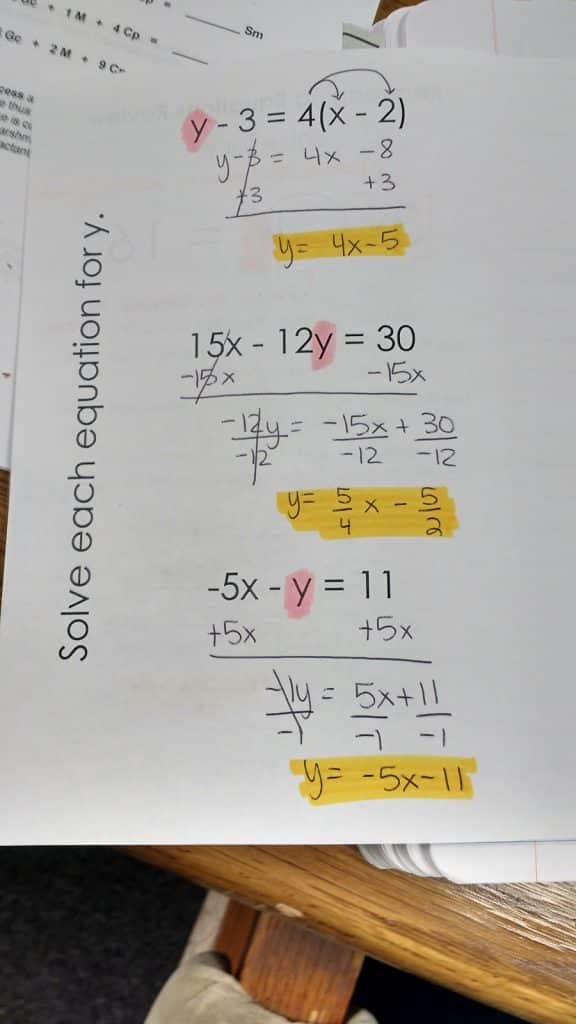 + 1 M + 4 Cp =
Sm
Gc + 2 M + 9 C
Solve each equation for y.
y - 3 = 4(x - 2)
y-3 = 4x -8
+3 +3
y= 4x-5
15x - 12y = 30
-15x -15x
-12y = -15x + 30
-12 -12 -12
y= 5/4 x - 5/2
-5x - y = 11
+5x +5x
-1y = 5x+11
-1 -1 -1
y= -5x-11